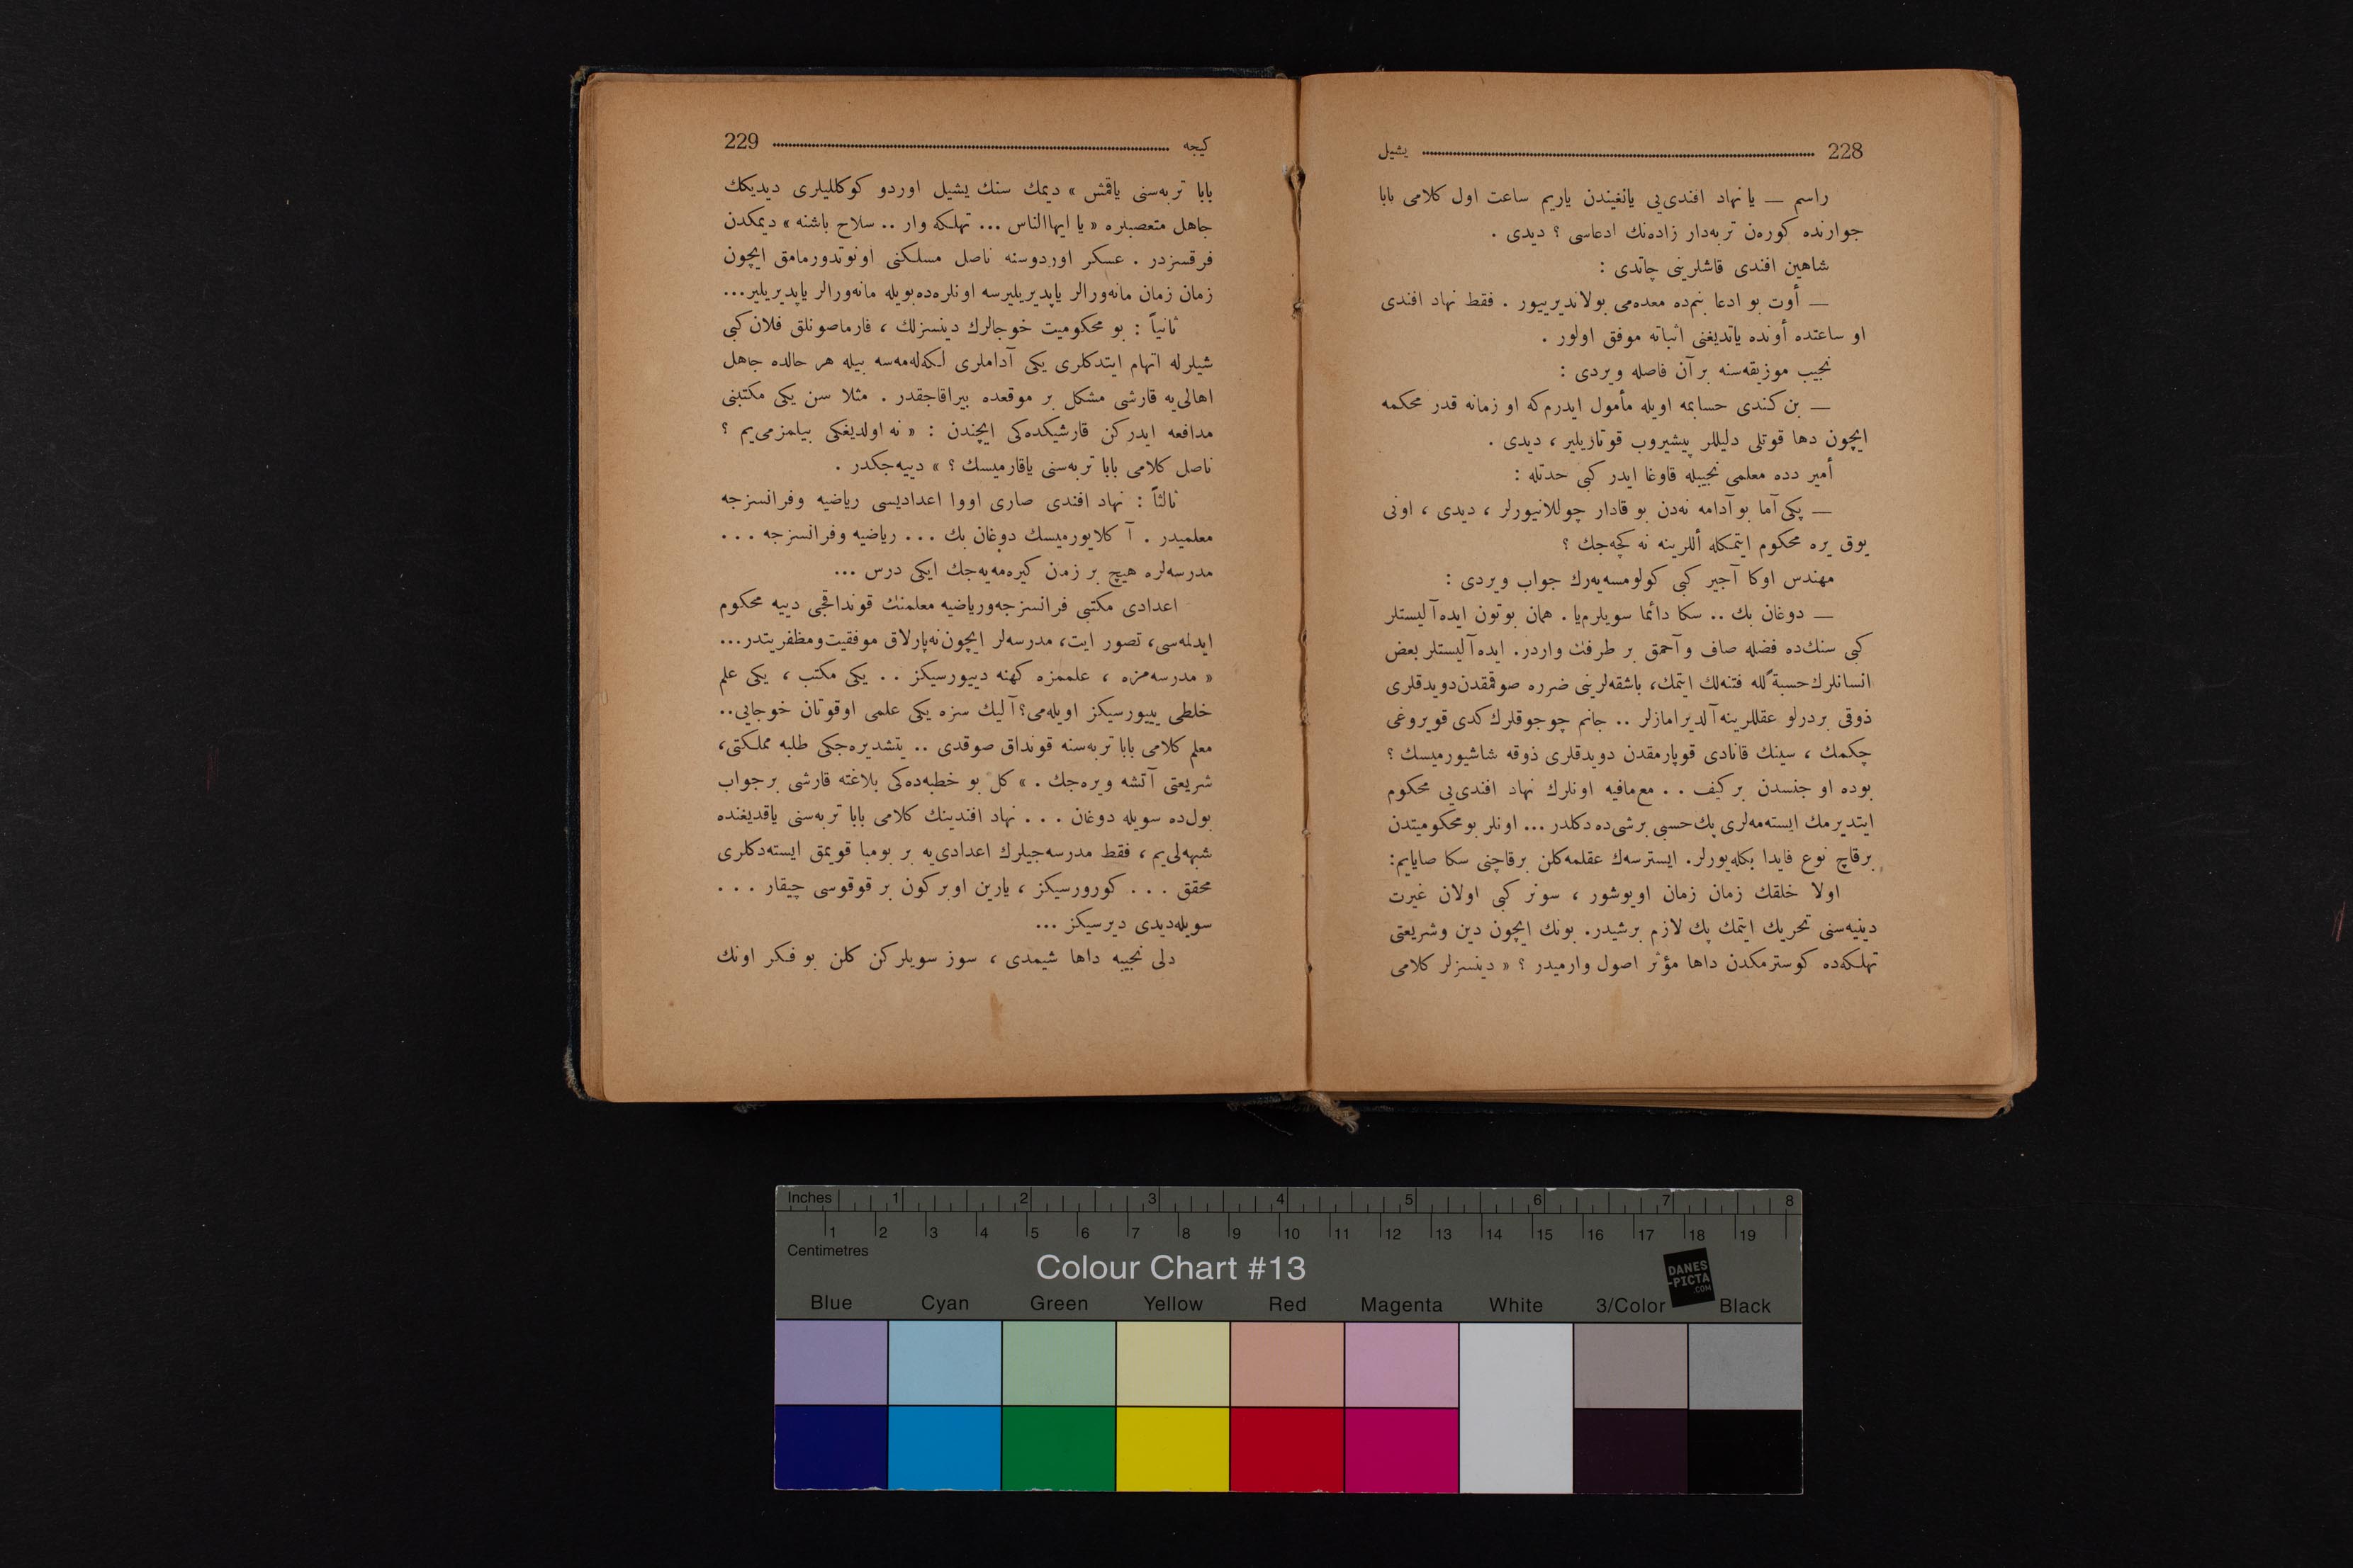 228 يشيل
راسم — يا نهاد افندى‌يى يانغيندن ياريم ساعت اول كلامى بابا
جوارنده كورەن تربه‌دار زاده‌نك ادعاسى ؟ ديدى .
شاهين افندى قاشلرينى چاتدى :
— أوت بو ادعا بنم‌ده معده‌مى بولانديرييور . فقط نهاد افندى
او ساعتده أونده ياتديغنى اثباته موفق اولور .
نجيب موزيقه‌سنه بر آن فاصله ويردى :
— بن كندى حسابمه اويله مأمول ايدرم كه او زمانه قدر محكمه
ايچون دها قوتلى دليللر پيشيروب قوتاريلير ، ديدى .
أمير دده معلمى نجيبله قاوغا ايدر كبى حدتله :
— پكى آما بو آدامه نه‌دن بو قادار چوللانيورلر ، ديدى ، اونى
يوق يره محكوم ايتمكله أللرينه نه كچه‌جك ؟
مهندس اوكا آجير كبى كولومسه‌يه‌رك جواب ويردى :
— دوغان بك .. سكا دائما سويلرم‌يا . همان بوتون ايده‌آليستلر
كبى سنك‌ده فضله صاف و آحمق بر طرفك واردر. ايده‌آليستلر بعض
انسانلرك حسبةً لله فتنه‌لك ايتمك، باشقه‌لرينى ضرره صوقمقدن دويدقلرى
ذوقى بردرلو عقللرينه آلديرامازلر .. جانم چوجوقلرك كدى قويروغى
چكمك ، سينك قانادى قوپارمقدن دويدقلرى ذوقه شاشيورميسك ؟
بوده او جنسدن بر كيف . . مع‌مافيه اونلرك نهاد افندى‌يى محكوم
ايتديرمك ايسته‌مه‌لرى پك حسبى برشى‌ده دكلدر ... اونلر بو محكوميتدن
برقاچ نوع فايدا بكله‌يورلر. ايسترسه‌ك عقلمه كلن برقاچنى سكا صايايم:
اولا خلقك زمان زمان اويوشور ، سونر كبى اولان غيرت
دينيه‌سنى تحريك ايتمك پك لازم برشيدر. بونك ايچون دين وشريعتى
تهلكه‌ده كوسترمكدن داها مؤثر اصول وارميدر ؟ « دينسزلر كلامى
كيجه 229
بابا تربه‌سنى ياقمش » ديمك سنك يشيل اوردو كوكلليلرى ديديكك
جاهل متعصبلره « يا ايهاالناس ... تهلكه وار .. سلاح باشنه » ديمكدن
فرقسزدر . عسكر اوردوسنه ناصل مسلكنى اونوتدورمامق ايچون
زمان زمان مانه‌ورالر ياپديريليرسه اونلره‌ده بويله مانه‌ورالر ياپديريلير...
ثانياً : بو محكوميت خوجالرك دينسزلك ، فارماصونلق فلان كبى
شيلرله اتهام ايتدكلرى يكى آداملرى لكه‌له‌مه‌سه بيله هر حالده جاهل
اهالى‌يه قارشى مشكل بر موقعده بيراقاجقدر . مثلا سن يكى مكتبنى
مدافعه ايدركن قارشيكده‌كى ايچندن : « نه اولديغكى بيلمزمى‌يم ؟
ناصل كلامى بابا تربه‌سنى ياقارميسك ؟ » دييه‌جكدر .
ثالثاً : نهاد افندى صارى اووا اعداديسى رياضيه وفرانسزجه
معلميدر . آ كلايورميسك دوغان بك ... رياضيه وفرانسزجه ...
مدرسه‌لره هيچ بر زمن كيره‌مه‌يه‌جك ايكى درس ...
اعدادى مكتبى فرانسزجه‌ورياضيه معلمنك قونداقجى دييه محكوم
ايدلمه‌سى، تصور ايت، مدرسه‌لر ايچون نه پارلاق موفقيت ومظفريتدر...
« مدرسه‌مزه ، علممزه كهنه دييورسيكز . . يكى مكتب ، يكى علم
خلطى ييورسيكز اويله‌مى؟ آليك سزه يكى علمى اوقوتان خوجايى..
معلم كلامى بابا تربه‌سنه قونداق صوقدى .. يتشديره‌جكى طلبه مملكتى،
شريعتى آتشه ويره‌جك . » كل بو خطبه‌ده‌كى بلاغته قارشى بر جواب
بول‌ده سويله دوغان . . . نهاد افندينك كلامى بابا تربه‌سنى ياقديغنده
شبهه‌لى‌يم ، فقط مدرسه‌جيلرك اعدادى‌يه بر بومبا قويمق ايسته‌دكلرى
محقق . . . كورورسيكز ، يارين اوبر كون بر قوقوسى چيقار . . .
سويله‌ديدى ديرسيكز ...
دلى نجيبه داها شيمدى ، سوز سويلركن كلن بو فكر اونك
Inches 1 2 3 4 5 6 7 8
1 2 3 4 5 6 7 8 9 10 11 12 13 14 15 16 17 18 19
Centimetres
Colour Chart #13
DANES
-PICTA
.COM
Blue Cyan Green Yellow Red Magenta White 3/Color Black